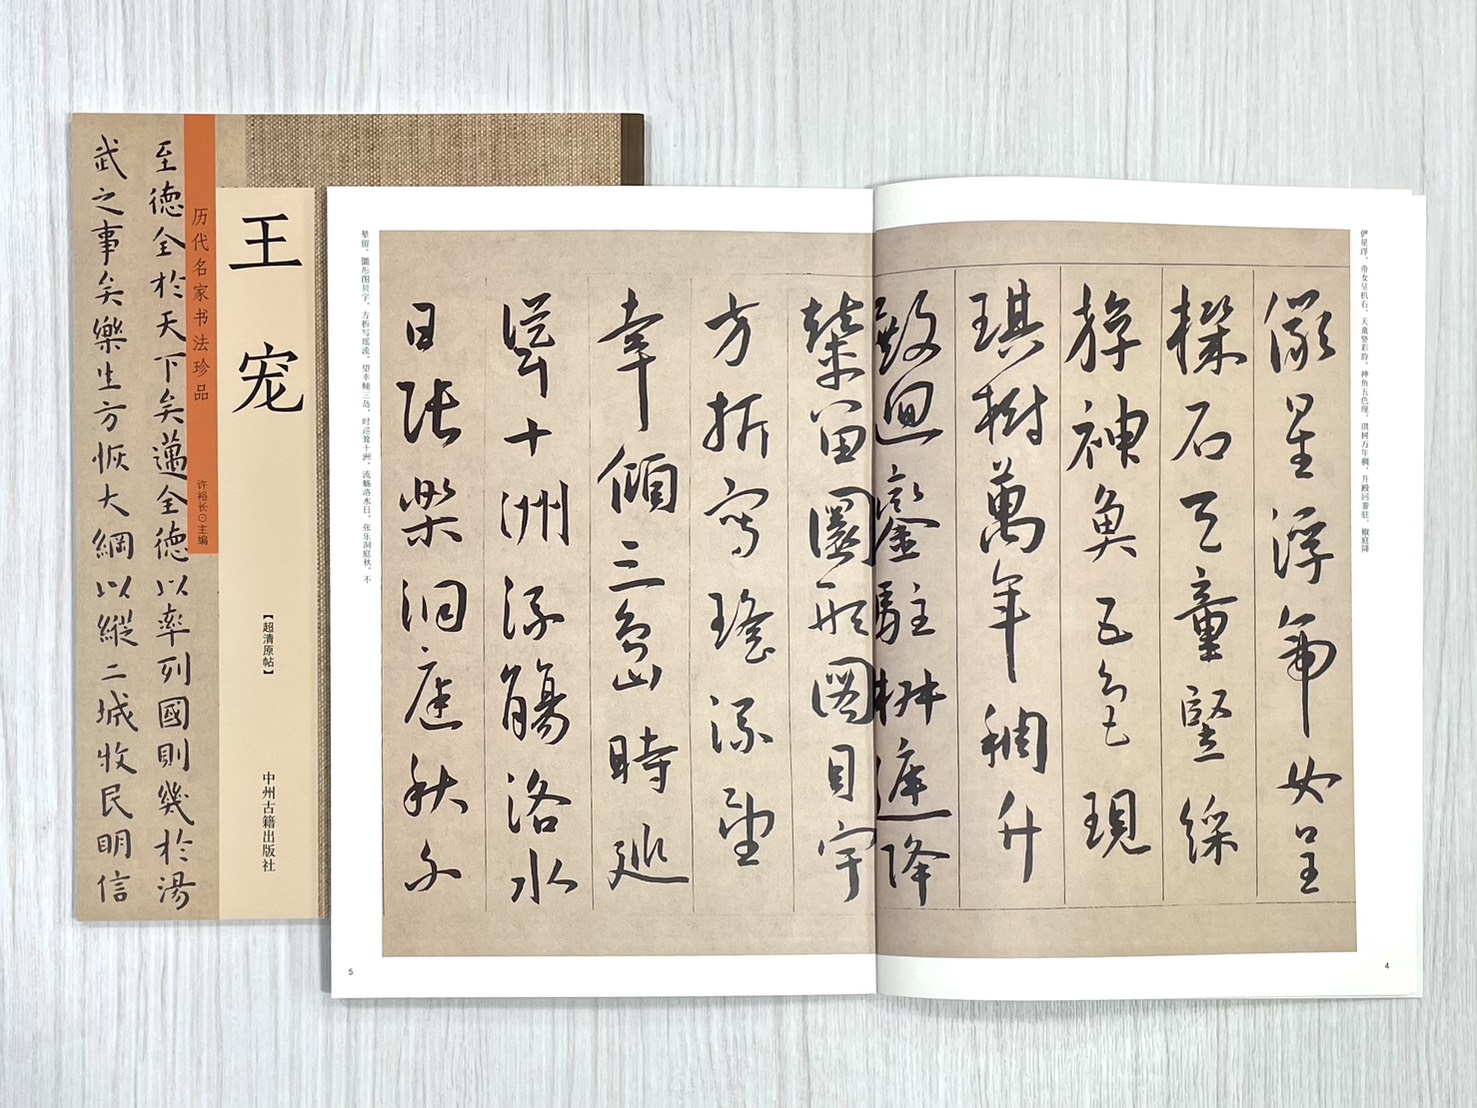 历代名家书法珍品
许裕长⊙主编
王宠
【超清原帖】
中州古籍出版社
至德全於天下矣邁全德以率列國則幾於湯
武之事矣樂生方恢大綱以縱二城收民明信
俨星浮。帝女呈机石，天童竖彩斿。神鱼五色现，琪树万年稠。升殿回銮驻，椒庭降
儼星浮帝女呈
機石天童豎綵
斿神魚五色現
琪樹萬年稠升
殿迴鑾駐椒庭降
輦留圜形圖貝宇
方折寫瑤流望
幸傾三島時巡
聳十洲流觴洛水
日張樂洞庭秋不
辇留。圜形图贝宇，方折写瑶流。望幸倾三岛，时巡耸十洲。流觞洛水日，张乐洞庭秋。不
4
5